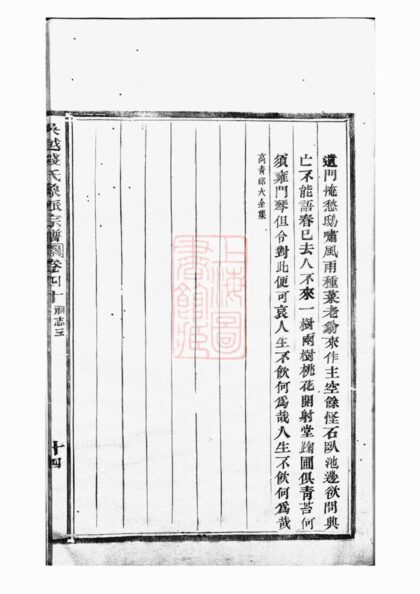 遺門掩愁鴟嘯風雨種菜老翁來作主空餘怪石臥池邊欲問興
亡不能語春已去人不來一樹兩樹桃花開射堂踘圃俱青苔何
須雍門琴但令對此便可哀人生不飲何爲哉人生不飲何爲哉
高青邱大全集
吳越錢氏派宗譜 卷四十 志五
十四
上海圖書館藏